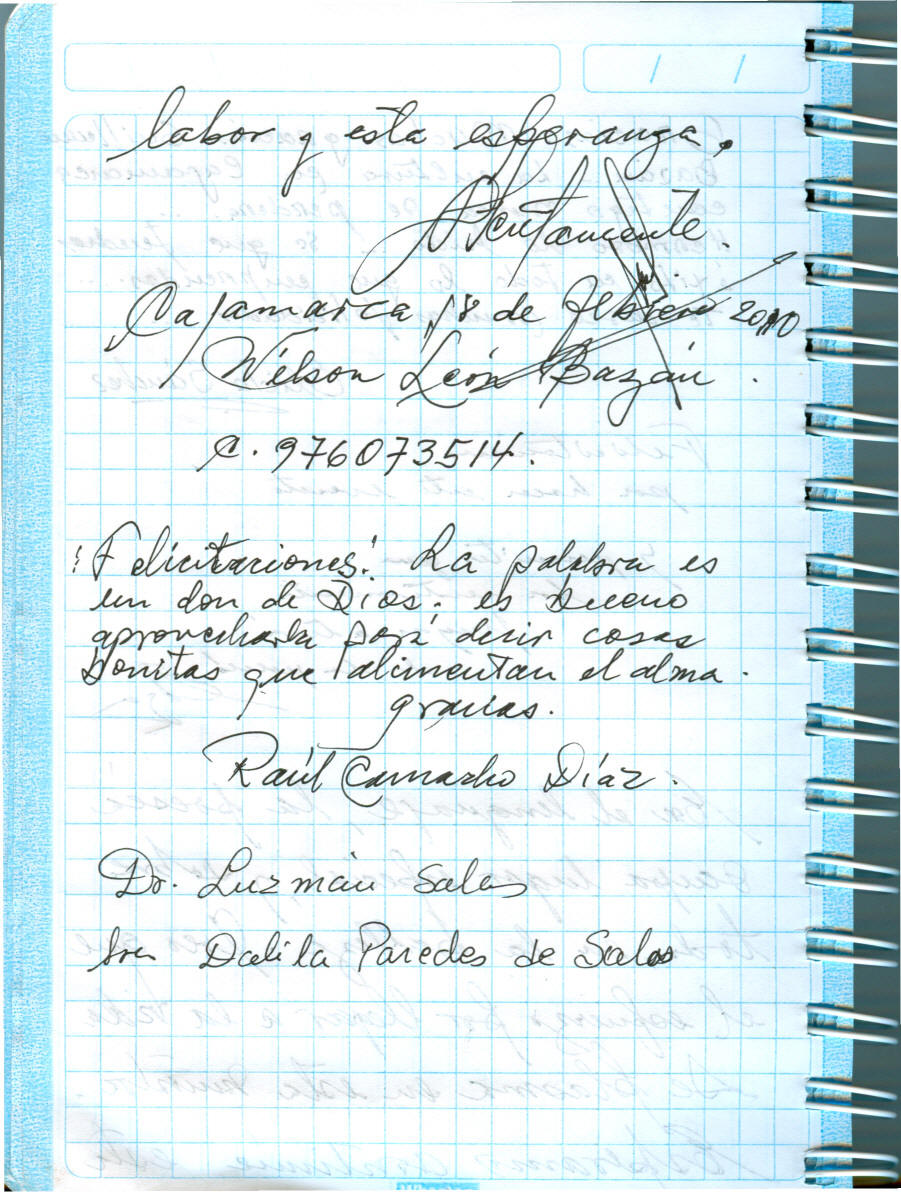 labor y esta esperanza.
Atentamente.
Cajamarca, 18 de febrero 2010
Wilson León Bazán.
C. 976073514.
¡Felicitaciones! La palabra es
un don de Dios. es bueno
aprovecharla para decir cosas
bonitas que alimentan el alma.
gracias.
Raúl Camacho Díaz.
Dr. Luzmán Salas
Sra Dalila Paredes de Salas